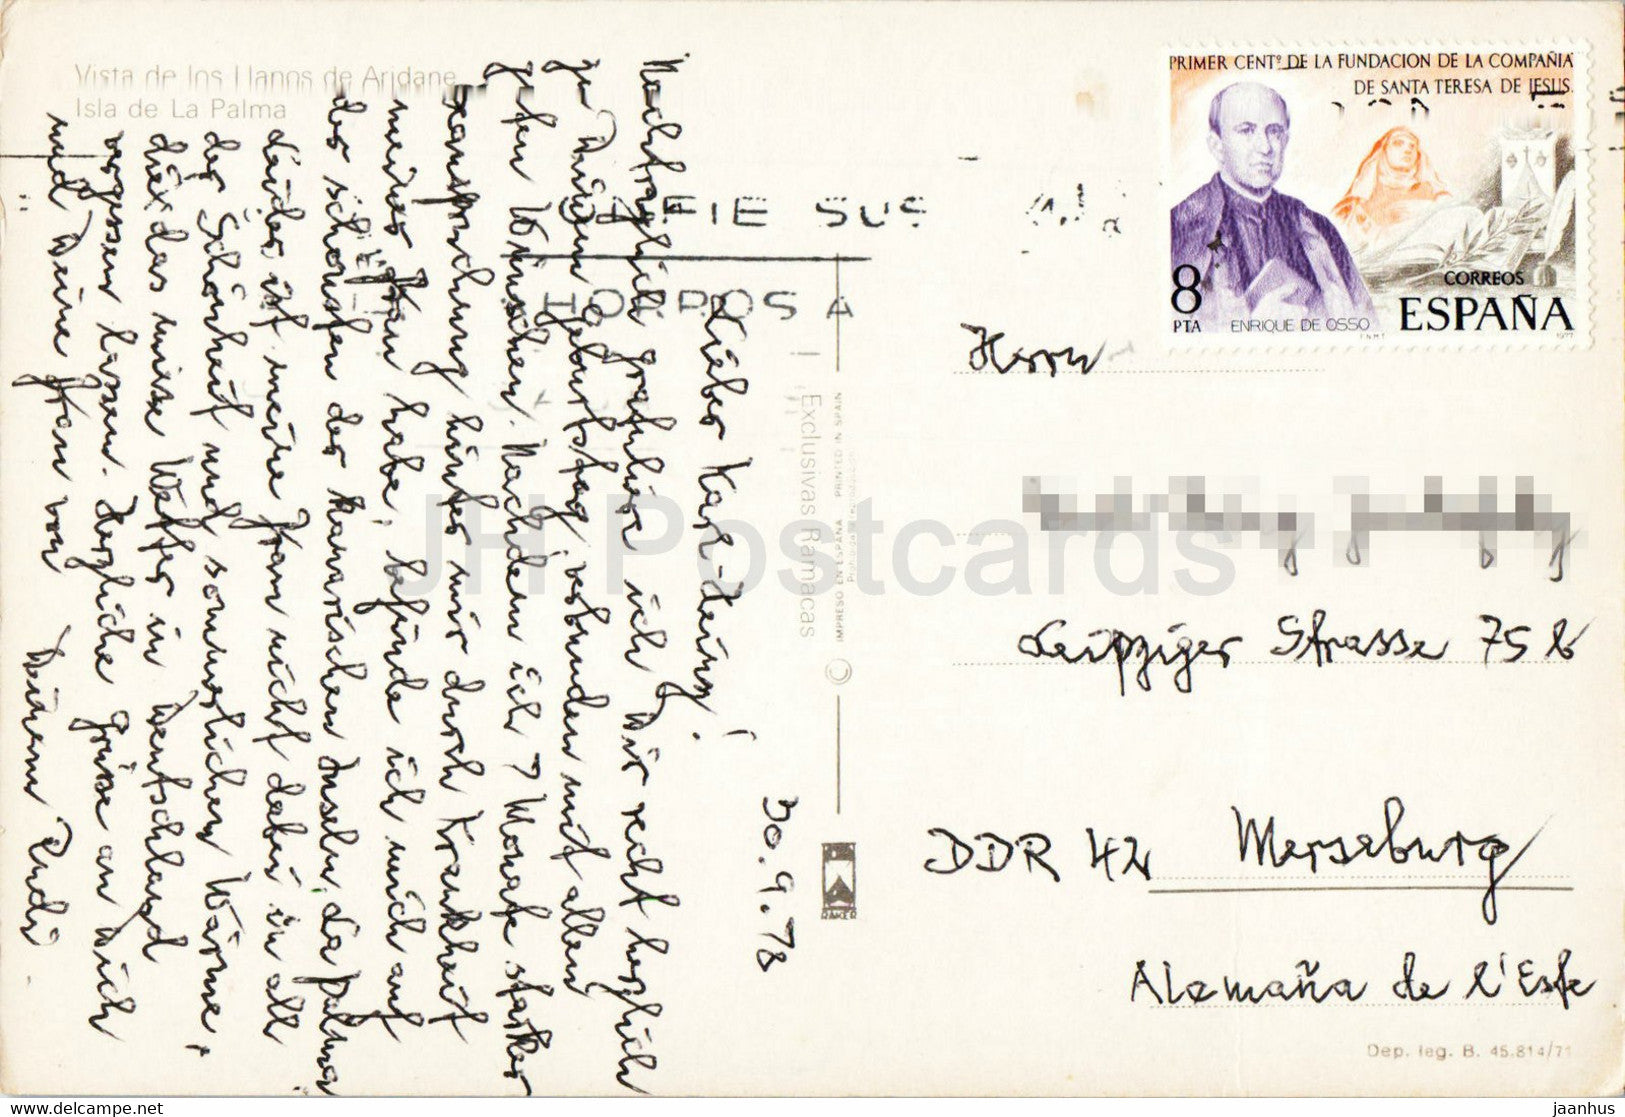 Vista de los Llanos de Aridane
Isla de La Palma
30.9.78
Lieber Karl-Heinz!
Nachträglich gratuliere ich Dir recht herzlich
zu Deinem Geburtstag verbunden mit allen
guten Wünschen. Nachdem ich 7 Monate starker
Beanspruchung hinter mir durch Krankheit
meiner Frau habe, befinde ich mich auf
der schönsten der Kanarischen Inseln, La Palma
Leider ist meine Frau nicht dabei in all
der Schönheit und sommerlichen Wärme,
die das miese Wetter in Deutschland
vergessen lassen. Herzliche Grüsse an Dich
und Deine Frau von
Deinem Rudi.
Exclusivas Ramacas
IMPRESO EN ESPAÑA - PRINTED IN SPAIN
RAKER
PRIMER CENTº DE LA FUNDACION DE LA COMPAÑIA
DE SANTA TERESA DE JESUS.
8
PTA
ENRIQUE DE OSSO
CORREOS
ESPAÑA
Herrn
Leipziger Strasse 75 b
DDR 42 Merseburg
Alemaña de l'Este
Dep. leg. B. 45.814/71
JH Postcards
delcampe.net
jaanhus